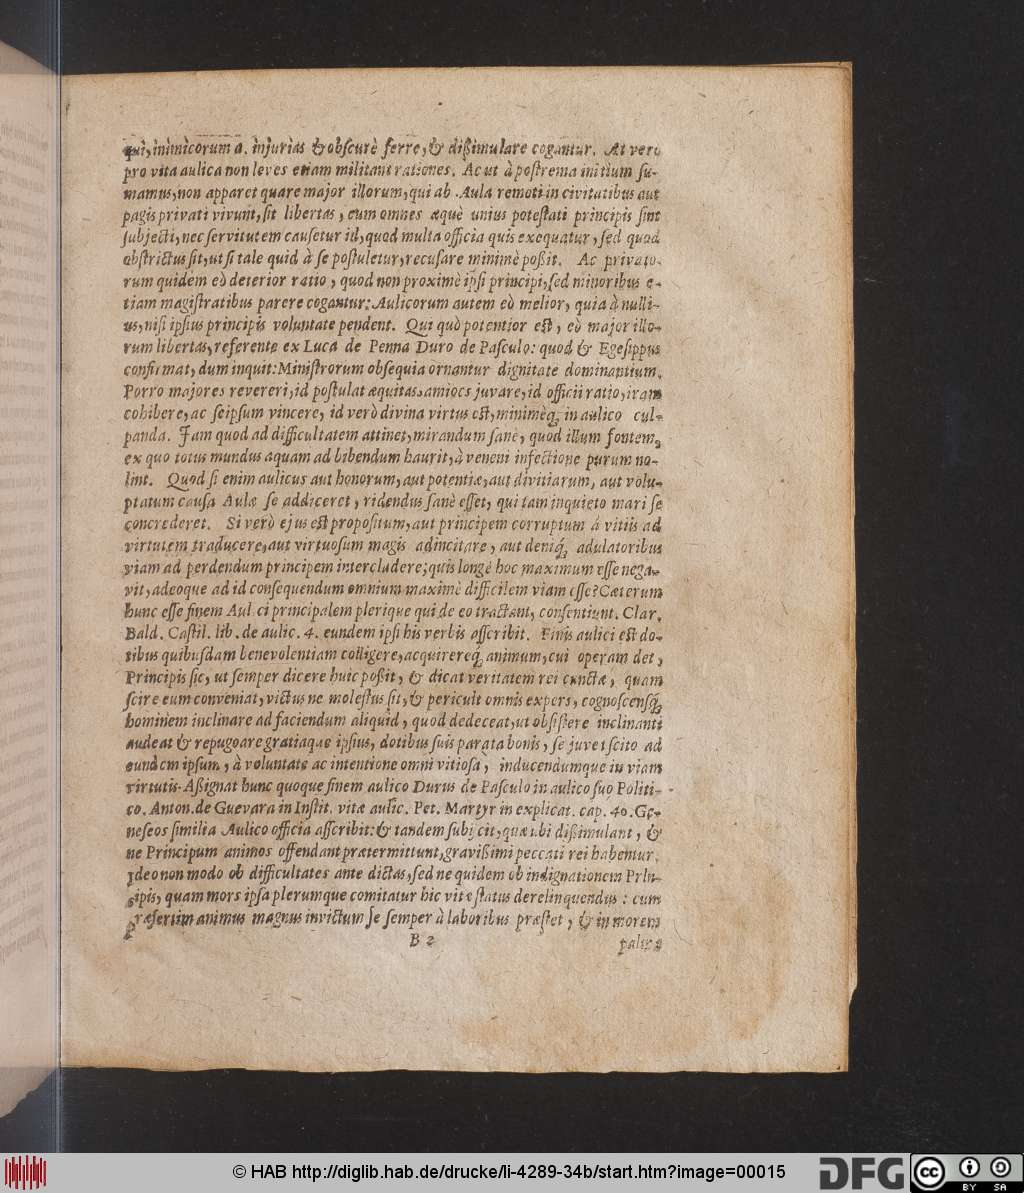 qui, inimicorum a. injurias & obscurè ferre, & dißimulare cogantur. At verò
pro vita aulica non leves etiam militant rationes. Ac ut à postrema initium su-
mamus, non apparet quare major illorum, qui ab Aula remoti in civitatibus aut
pagis privati vivunt, sit libertas, cum omnes æquè unius potestati principis sint
subjecti, nec servitutem causetur id, quod multa officia quis exequatur, sed quod
obstrictus sit, ut si tale quid à se postuletur, recusare minimè poßit. Ac privato-
rum quidem eò deterior ratio, quod non proximè ipsi principi, sed minoribus e-
tiam magistratibus parere cogantur: Aulicorum autem eò melior, quia à nulli-
us, nisi ipsius principis voluntate pendent. Qui quò potentior est, eò major illo-
rum libertas, referente ex Luca de Penna Duro de Pasculo: quod & Egesippus
confirmat, dum inquit: Ministrorum obsequia ornantur dignitate dominantium.
Porro majores revereri, id postulat æquitas, amicos juvare, id officii ratio, iram
cohibere, ac seipsum vincere, id verò divina virtus est, minimèq́; in aulico cul-
panda. Jam quod ad difficultatem attinet, mirandum sanè, quod illum fontem,
ex quo totus mundus aquam ad bibendum haurit, à veneni infectione purum no-
lint. Quod si enim aulicus aut honorum, aut potentiæ, aut divitiarum, aut volu-
ptatum causa Aulæ se addiceret, ridendus sanè esset, qui tam inquieto mari se
concrederet. Si verò ejus est propositum, aut principem corruptum á vitiis ad
virtutem traducere, aut virtuosum magis adincitare, aut deniq́; adulatoribus
viam ad perdendum principem intercludere; quis longè hoc maximum esse nega-
vit, adeoque ad id consequendum omnium maximè difficilem viam esse? Cæterum
hunc esse finem Aul ci principalem plerique qui de eo tractant, consentiunt. Clar.
Bald. Castil. lib. de aulic. 4. eundem ipsi his verbis asscribit. Finis aulici est do-
tibus quibusdam benevolentiam colligere, acquirereq́; animum, cui operam det,
Principis sic, ut semper dicere huic poßit, & dicat veritatem rei cunctæ, quam
scire eum conveniat, victus ne molestus sit, & periculi omnis expers, cognoscensq́;
hominem inclinare ad faciendum aliquid, quod dedeceat, ut obsistere inclinanti
audeat & repugoare gratiaque ipsius, dotibus suis parata bonis, se juvet scito ad
eundem ipsum, à voluntate ac intentione omni vitiosa, inducendumque in viam
virtutis. Aßignat hunc quoque finem aulico Durus de Pasculo in aulico suo Politi-
co. Anton. de Guevara in Instit. vitæ aulic. Pet. Martyr in explicat. cap. 40. Ge-
neseos similia Aulico officia asscribit: & tandem subj cit, quæ ubi dißimulant, &
ne Principum animos offendant prætermittunt, gravißimi peccati rei habentur.
Ideo non modo ob difficultates ante dictas, sed ne quidem ob indignationem Prin-
cipis, quam mors ipsa plerumque comitatur hic vitæ status derelinquendus: cum
præsertim animus magnus invictum se semper à laboribus præstet, & in morem
B 2 palmæ
© HAB http://diglib.hab.de/drucke/li-4289-34b/start.htm?image=00015
DFG
cc BY SA